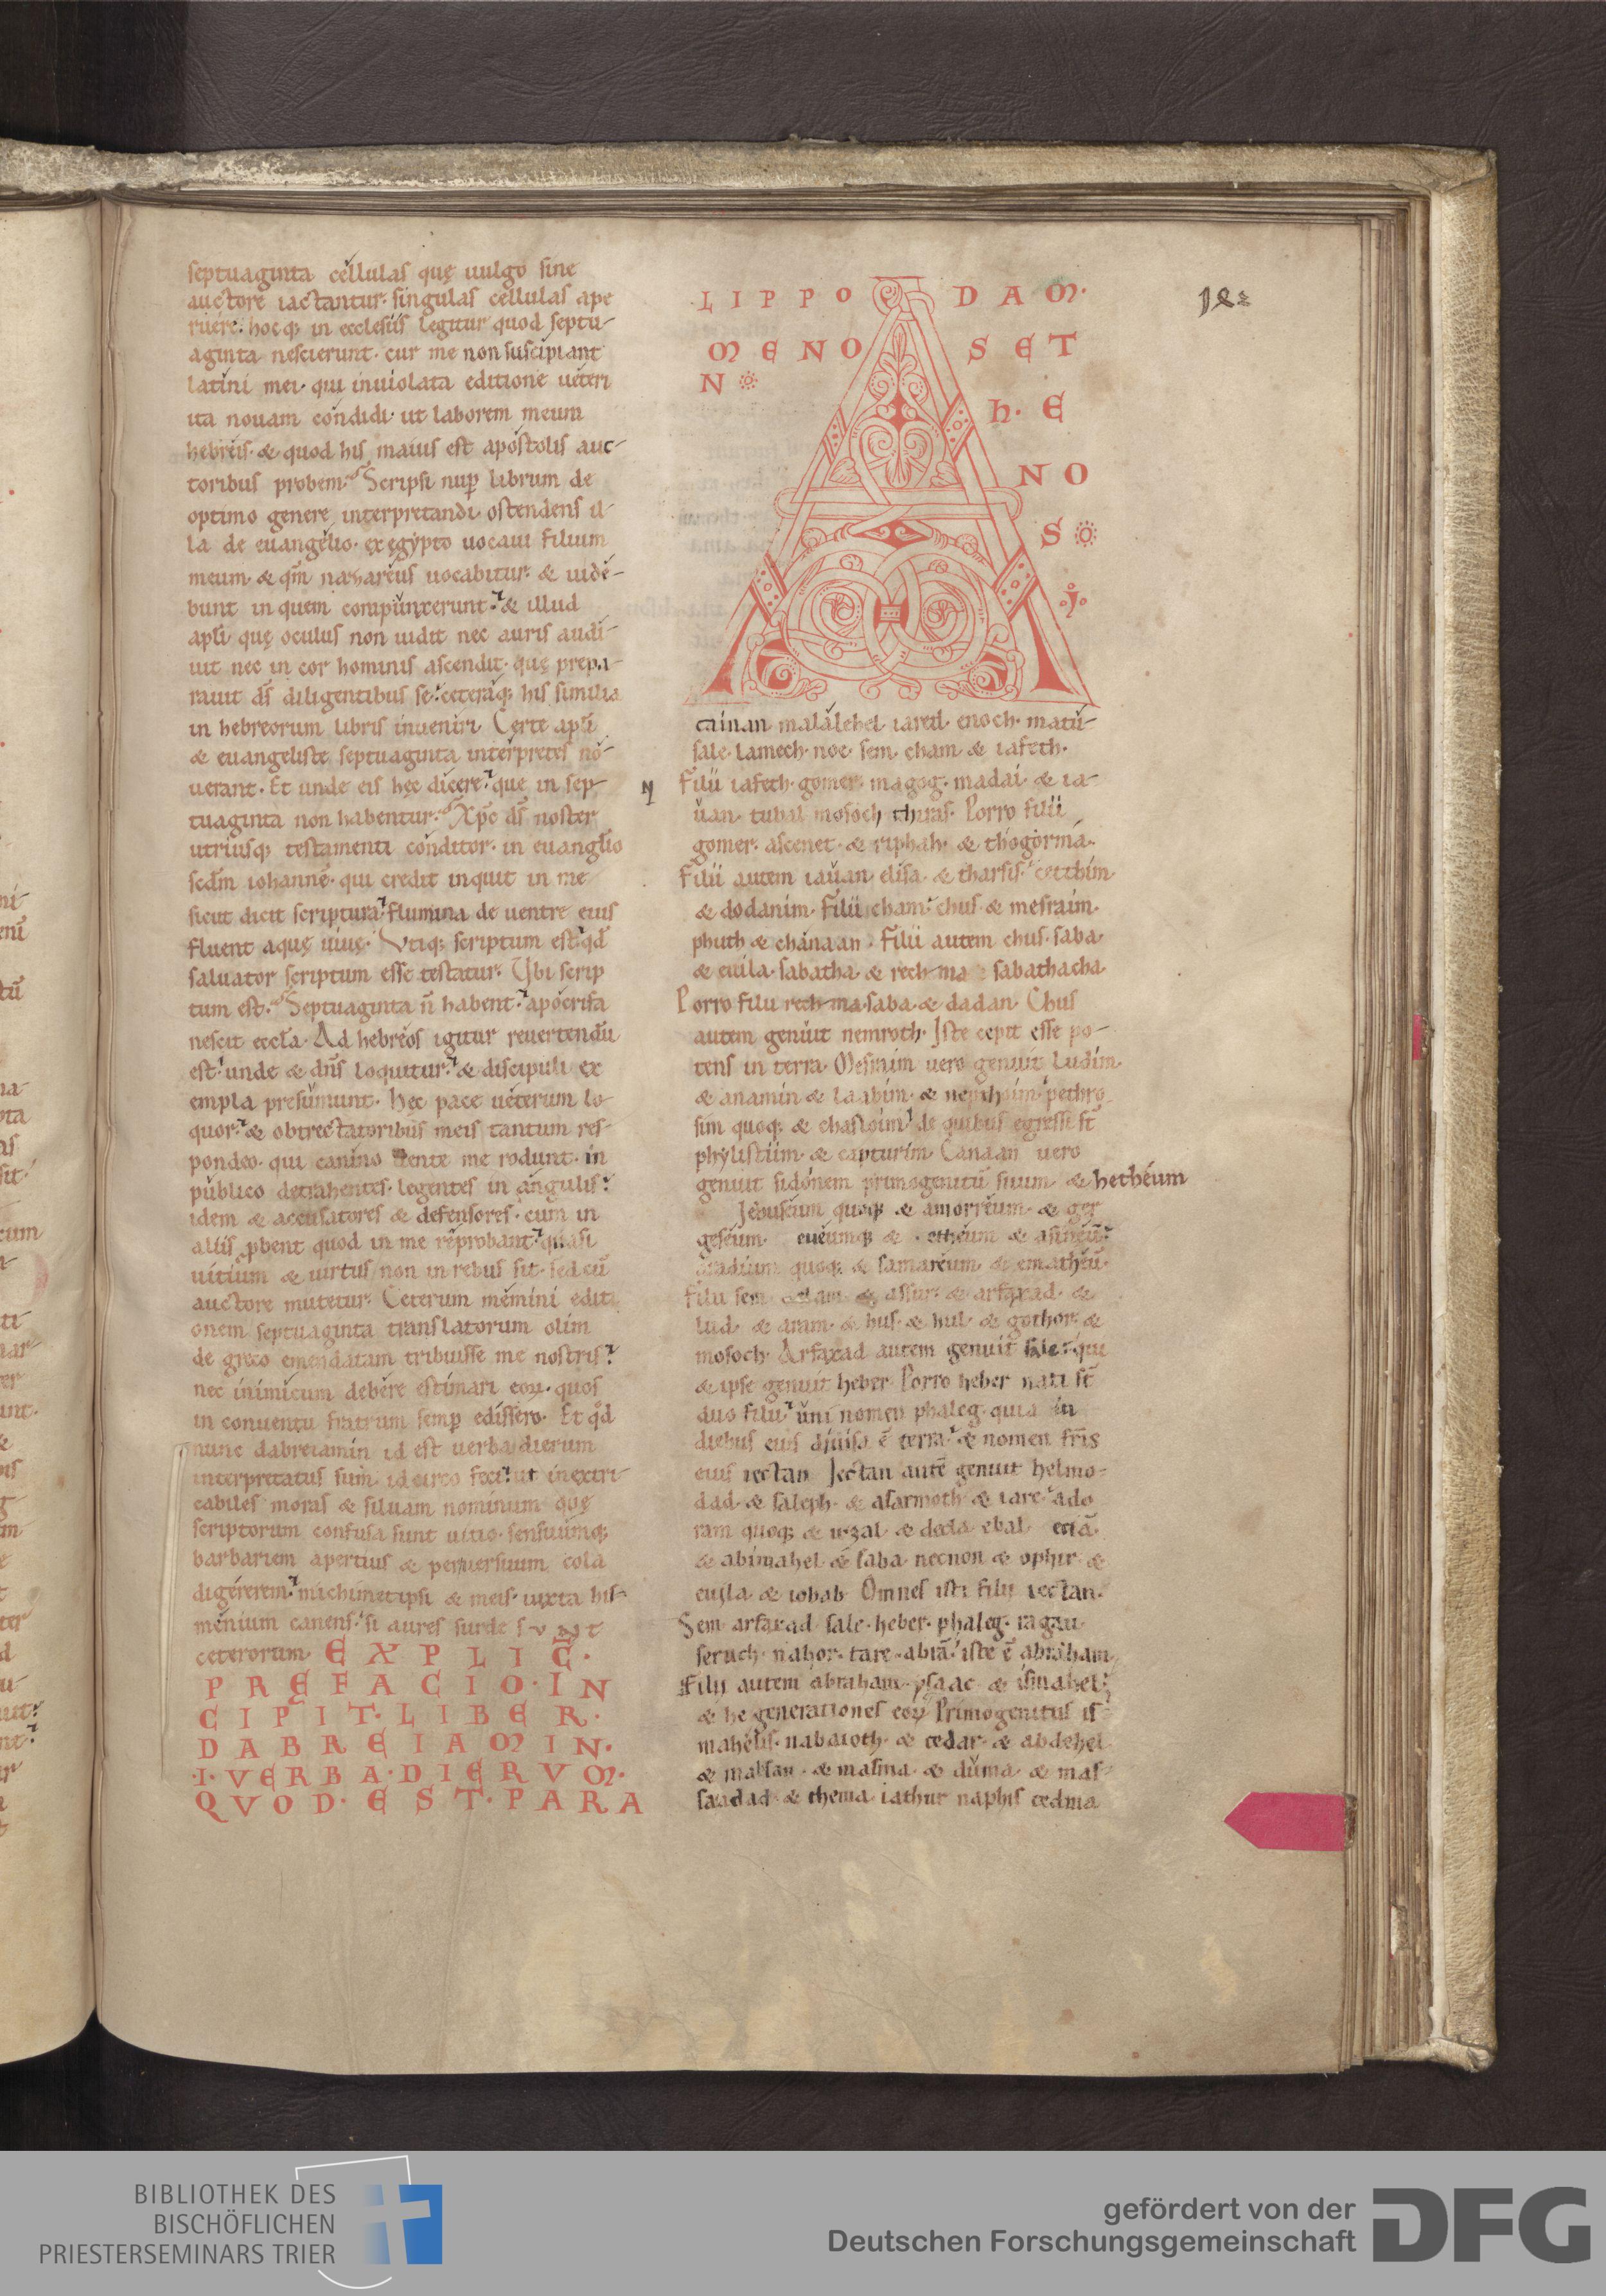 septuaginta cellulas quę uulgo sine
auctore iactantur. singulas cellulas ape
ruere. hocq; in ecclesiis legitur quod septu-
aginta nescierunt. cur me non suscipiant
latini mei. qui inuiolata editione ueteri
ita nouam condidi. ut laborem meum
hebreis. & quod his maius est apostolis auc-
toribus probem. Scripsi nup̄ librum de
optimo genere interpretandi. ostendens il-
la de euangelio. ex egypto uocaui filium
meum. & qm̄ nazareus uocabitur. & uide-
bunt in quem compunxerunt. & illud
apl̄i quę oculus non uidit nec auris audi-
uit nec in cor hominis ascendit. quę prepa-
rauit ds̄ diligentibus se. ceteraq; his similia
in hebreorum libris inueniri. Certe apl̄i
& euangeliste septuaginta interpretes no-
uerant. Et unde eis hęc dicere. que in sep-
tuaginta non habentur. Xp̄c ds̄ noster
utriusq; testamenti conditor. in euanglio
scd̄m iohannē. qui credit inquit in me
sicut dicit scriptura. flumina de uentre eius
fluent aquę uiuę. Vtiq; scriptum est. qd̄
saluator scriptum esse testatur. Vbi scrip
tum est. Septuaginta n̄ habent. apocrifa
nescit eccl̄a. Ad hebreos igitur reuertendū
est. unde & dn̄s loquitur. & discipuli ex
empla presumunt. Hec pace ueterum lo-
quor. & obtrectatoribus meis tantum res-
pondeo. qui canino dente me rodunt. in
publico detrahentes. legentes in angulis.
idem & accusatores & defensores. cum in
aliis ꝓbent quod in me reprobant. quasi
uitium & uirtus non in rebus sit. sed cū
auctore mutetur. Ceterum memini editi
onem septuaginta translatorum olim
de greco emendatam tribuisse me nostris.
nec inimicum debere estimari eoꝝ. quos
in conuentu fratrum semp̄ edissero. Et qđ
nunc dabreiamin id est uerba dierum
interpretatus sum. idcirco feci. ut inextri-
cabiles moras & siluam nominum quę
scriptorum confusa sunt uitio. sensuumq;
barbariem apertius & per uersuum cola
digererem. michimetipsi & meis. iuxta his-
menium canens. si aures surde sunt
ceterorum. EXPLIC̄.
PREFACIO. IN
CIPIT. LIBER.
DABREIAMIN.
.I. VERBA. DIERVM.
QVOD. EST. PARA
LIPPO DAM.
MENO SET
N
H. E
NO
S
A
.J.
cainan malalehel iared enoch. matu-
sale. lamech. noe. sem. cham & iafeth.
Filii iafeth. gomer. magog. madai & ia-
uan. tubal mosoch thiras. Porro filii
gomer. ascenet. & riphah. & thogorma.
Filii autem iauan elisa. & tharsis. cetthim
& dodanim. Filii cham. chus & mesraim.
phuth & chanaan. Filii autem chus. saba.
& euila. sabatha. & rechma & sabathacha.
Porro filii rechma. saba. & dadan. Chus
autem genuit nemroth. Iste cepit esse po-
tens in terra. Mesraim uero genuit ludim.
& anamin & laabim. & nepthoim. pethro
sim quoq; & chasloim. de quibus egressi st̄
phylistiim. & capturim. Canaan uero
genuit sidonem primogenitū suum & hetheum
Iebuseum quoq; & amorreum. & ger
geseum. eueumq; & & asineū.
aradium quoq; & samareum & ematheū.
Filii sem elam & assur. & arfaxad. &
lud. & aram. & hus. & hul. & gothor. &
mosoch. Arfaxad autem genuit sale. qui
& ipse genuit heber. Porro heber nati st̄
duo filii. uni nomen phaleg. quia in
diebus eius diuisa ē terra. & nomen fr̄is
eius iectan. Iectan autē genuit helmo-
dad. & saleph. & asarmoth & iare. ado
ram quoq; & uzal & decla. ebal etiā
& abimahel & saba necnon & ophir &
euila. & iobab. Omnes isti filii iectan.
Sem arfaxad sale. heber. phaleg. ragau
seruch. nahor. tare. abrā. iste ē abraham.
Filii autem abraham. ysaac & ismahel.
& he generationes eoꝝ. Primogenitus is-
mahelis. nabaioth. & cedar. & abdehel
& mabsan. & masma. & duma. & mas-
saadad. & thema. iathur naphis cedma
BIBLIOTHEK DES
BISCHÖFLICHEN
PRIESTERSEMINARS TRIER
gefördert von der
Deutschen Forschungsgemeinschaft
DFG